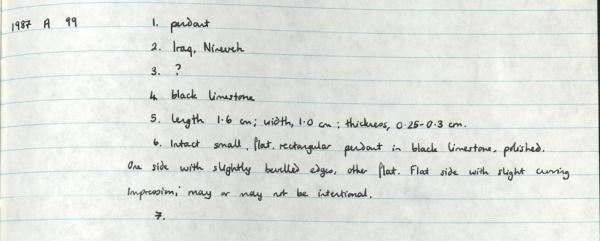 1987 A 99 1. pendant
2. Iraq, Nineveh
3. ?
4. black limestone
5. length 1.6 cm; width, 1.0 cm; thickness, 0.25-0.3 cm.
6. Intact small, flat, rectangular pendant in black limestone, polished.
One side with slightly bevelled edges, other flat. Flat side with slight curving
impression; may or may not be intentional.
7.